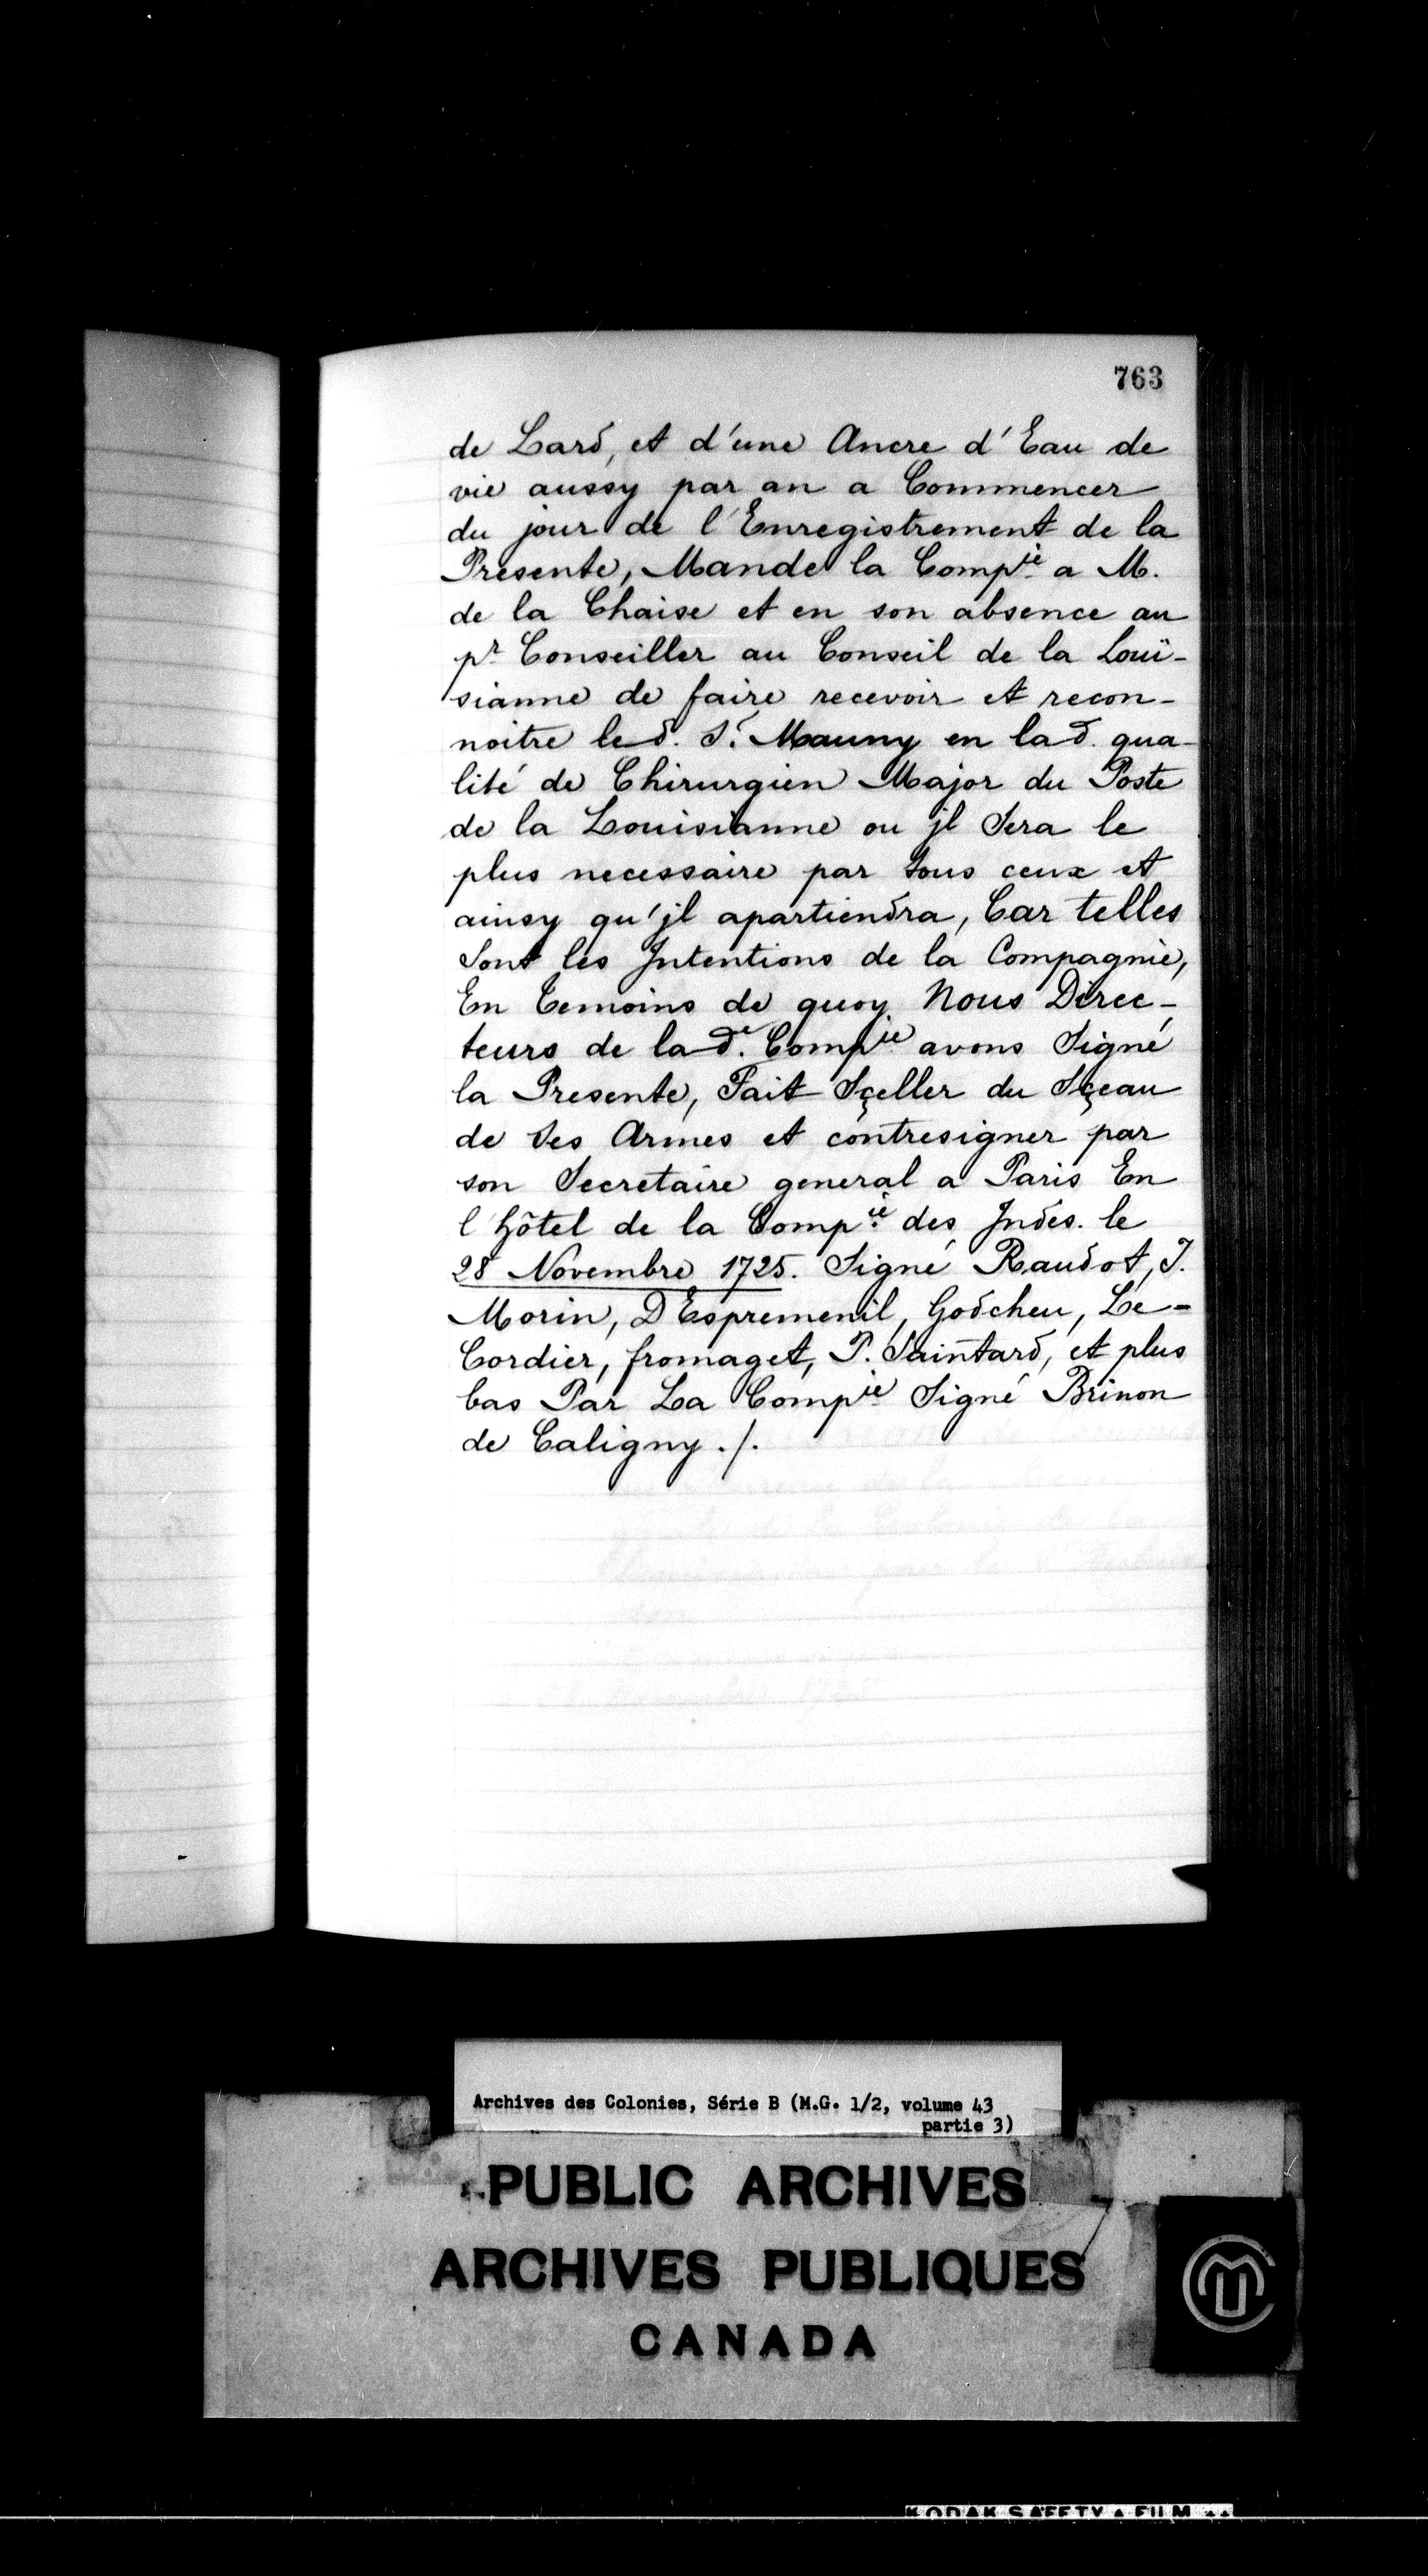 763
de Lard, et d'une Ancre d'Eau de
vie aussy par an a Commencer
du jour de l'Enregistrement de la
Presente, Mande la Compie a M.
de la Chaise et en son absence au
pr Conseiller au Conseil de la Louï-
sianne de faire recevoir et recon-
noitre led. Sr. Mauny en lad. qua-
lité de Chirurgien Major du Poste
de la Louisianne ou jl Sera le
plus necessaire par tous ceux et
ainsy qu'jl apartiendra, Car telles
Sont les Jntentions de la Compagnie,
En Temoins de quoy Nous Direc-
teurs de lade. Compie avons Signé
la Presente, Fait Sçeller du Sçeau
de Ses Armes et contresigner par
son Secretaire general a Paris En
l'hôtel de la Compie des Jndes. le
28 Novembre 1725. Signé Raudot, J.
Morin, D'Espremenil, Godeheu, Le-
Cordier, fromaget, P. Saintard, et plus
bas Par La Compie Signé Brinon
de Caligny ./.
Archives des Colonies, Série B (M.G. 1/2, volume 43
partie 3)
PUBLIC ARCHIVES
ARCHIVES PUBLIQUES
CANADA
KODAK SAFETY FILM